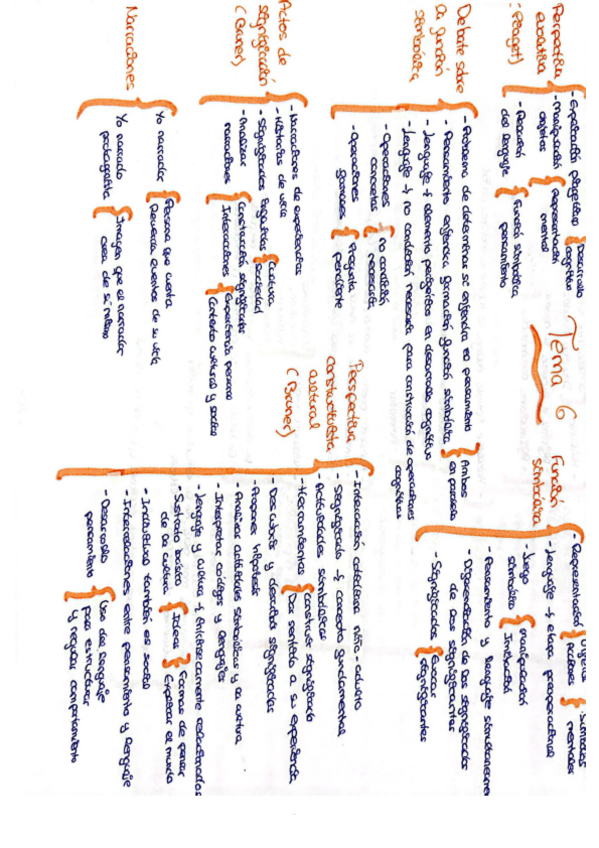 Tema 6
Perspectiva
evolutiva
(Piaget)
- Explicación piagetiana
Desarrollo
cognitivo
- Manipulación
objetos
Representación
mental
- Aparición
del lenguaje
Función simbólica
Pensamiento
Debate sobre
la función
simbólica
- Problema de determinar si engendra el pensamiento
- Pensamiento engendra formación función simbólica
Ambos
en paralelo
- Lenguaje → elemento en desarrollo cognitivo
- Lenguaje → no condición necesaria para construcción de operaciones
cognitivas
- Operaciones
concretas
No condición
necesaria
- Operaciones
formales
Pregunta
pendiente
Actos de
significación
(Bruner)
- Narraciones de experiencias
- Historias de vida
- Significados
Cultura
Sociedad
- Analizar
narraciones
Construcción significados
Interacciones
Experiencia persona
Contexto cultural y social
Narraciones
Yo narrador
Persona que cuenta
Recuerda eventos de su vida
Yo narrado
protagonista
Imagen que el narrador
crea de sí mismo
Función
simbólica
- Representación
Objetos
Acciones
Símbolos
mentales
- Lenguaje → etapa preoperacional
- Juego
simbólico
Manipulación
Imitación
- Pensamiento y lenguaje simultáneamente
- Diferenciación de los significados
de los significantes
- Significados
Evocar
significantes
Perspectiva
constructivista
cultural
(Bruner)
- Interacción niño - adulto
- Significado → concepto fundamental
- Actividades simbólicas
- Herramientas
Construir significado
Dar sentido a su experiencia
- Descubrir y describir significados
- Proponer hipótesis
- Analizar actividades simbólicas y la cultura
- Interpretar códigos y lenguajes
- Lenguaje y cultura → intrínsecamente relacionados
- Sustrato básico
de la cultura
Ideas
Formas de pensar
Explicar el mundo
- Individual también es social
- Interrelaciones entre pensamiento y lenguaje
- Desarrollo
pensamiento
Uso del lenguaje
para estructurar
y regular comportamiento